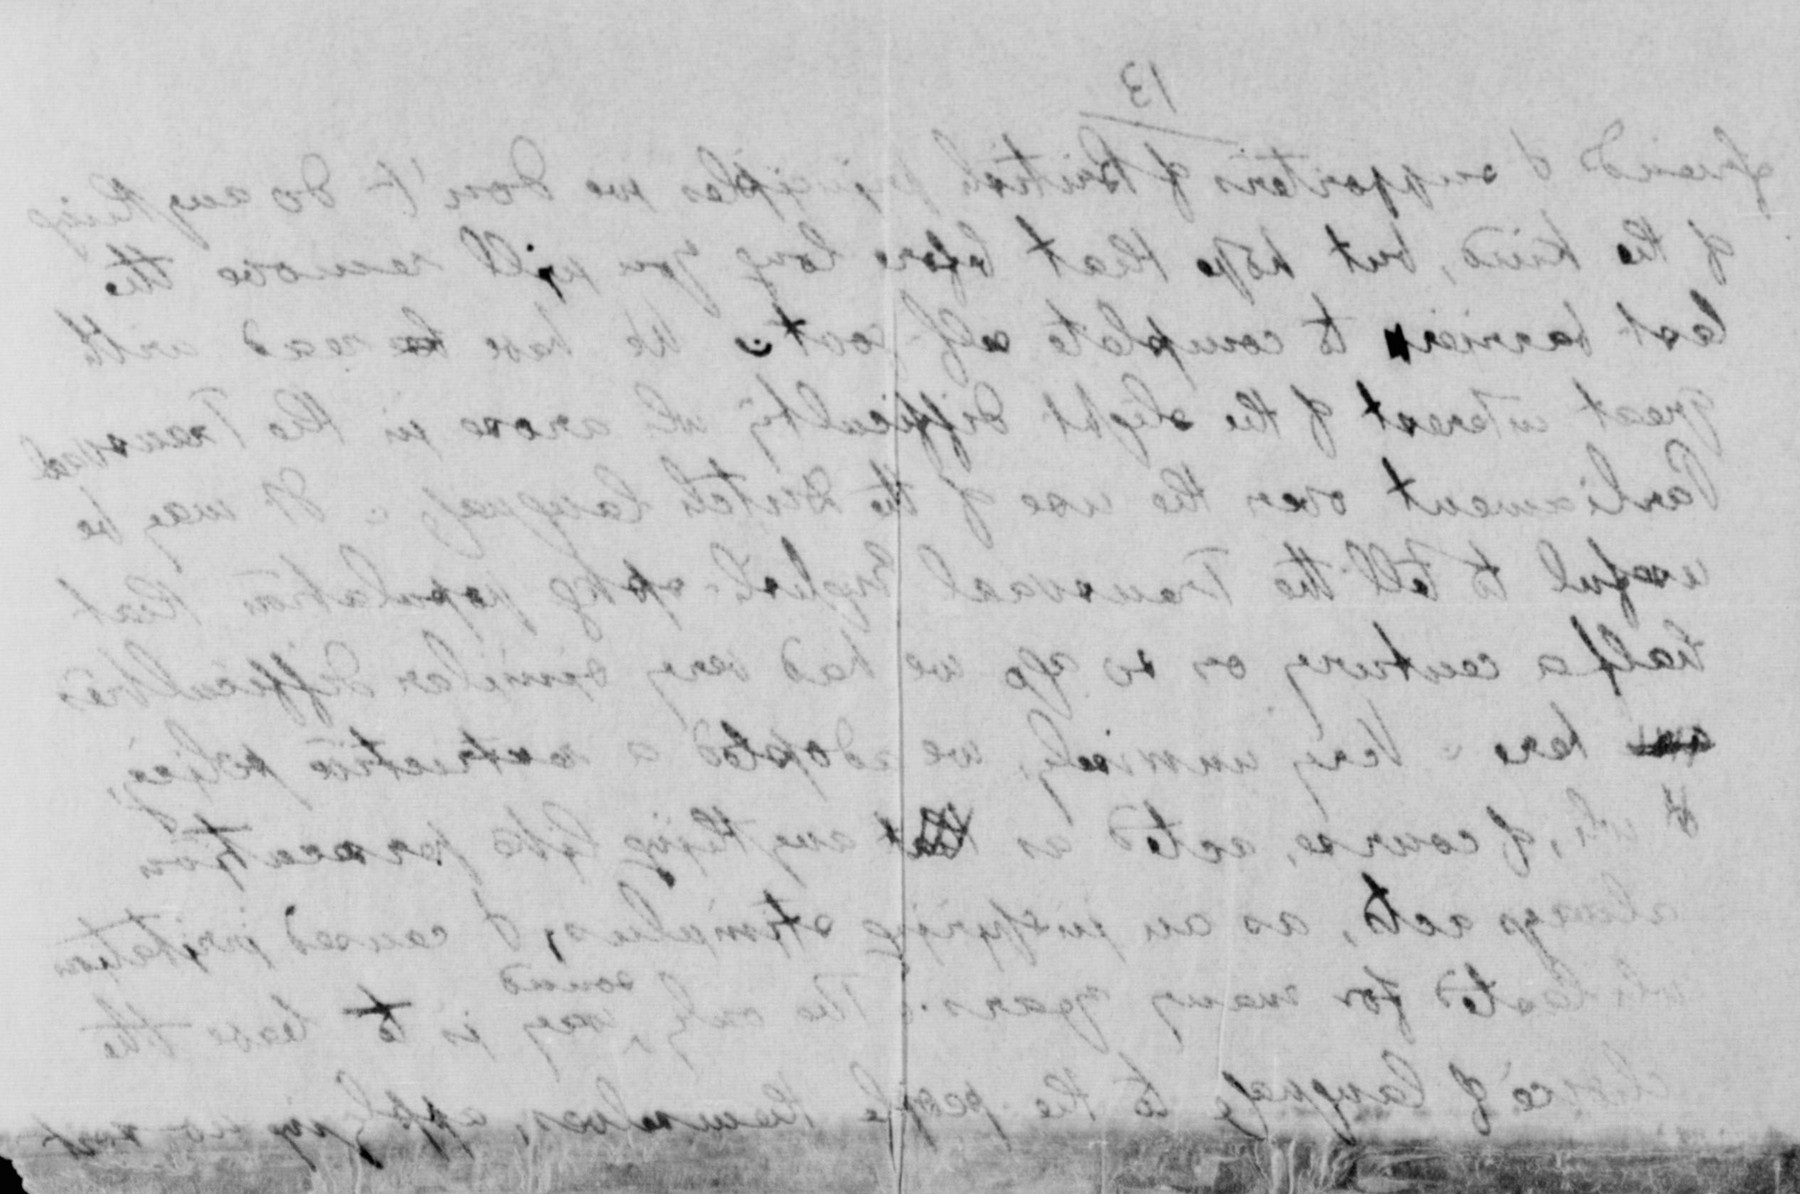 13
friends & supporters of British principles we don't do anything
of the kind, but hope that before long you will remove the
last barrier to complete self-govt. We have read with
great interest of the slight difficulty wh arose in the Transvaal
Parliament over the use of the Dutch language. It may be
useful to tell the Transvaal English-spkg population that
half a century or so ago we had very similar difficulties
here. Very unwisely, we adopted a restrictive policy,
& wh, of course, acted as anything like persecution
always acts, as an inspiring stimulus, & caused irritation
wh lasted for many years. The only sound way is to leave the
choice of language to the people themselves, applying no sort